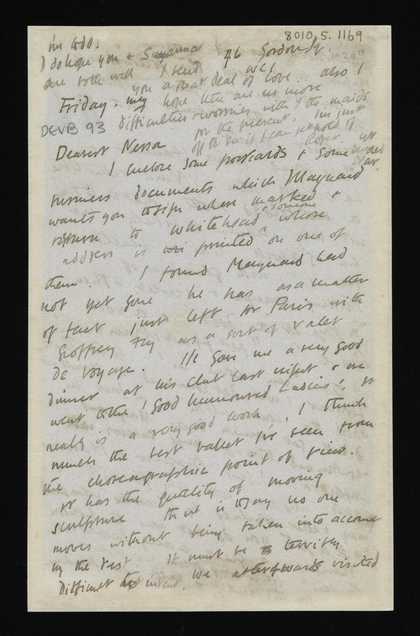 8010.5.1169
in WDO.
I do hope you & Susanna
are both well I send
you a great deal of love. also I
hope there are no more
difficulties & worries with the maids
for the present. I'm just
46 Gordon Sq.
WC1
Friday.
DEVB 93
Dearest Nessa
I enclose some postcards & some
business documents which Maynard
wants you to sign where marked &
return to Whitehead & someone whose
address is printed on one of
them. I found Maynard had
not yet gone he has as a matter
of fact just left for Paris with
Geoffrey Fry as a sort of valet
de voyage. He gave me a very good
dinner at his club last night & we
went to the 'Good humoured Ladies'. It
really is a very good work, I think
much the best ballet I've seen from
the choreographic point of view.
It has the quality of moving
sculpture that is to say no one
moves without being taken into account
by the rest it must be terribly
difficult to invent. We afterwards visited